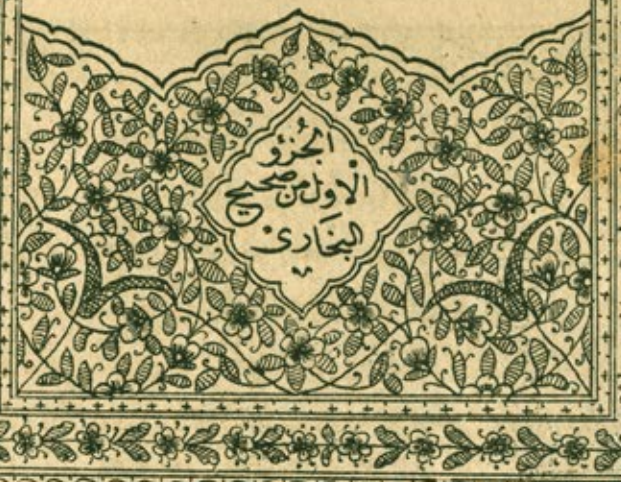 الجزو
الاول من صحيح
البخارى